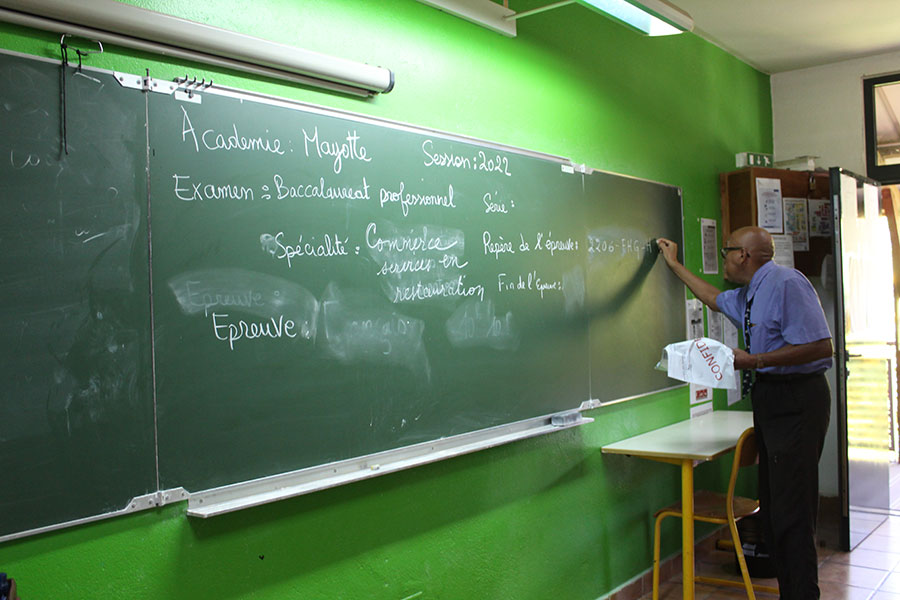 Academie: Mayotte
Session: 2022
Examen: Baccalaureat professionnel
Série:
Spécialité: Commerce
services en
restauration
Repère de l'épreuve: 2206-
Fin de l'épreuve:
Epreuve
Epreuve:
CONFID